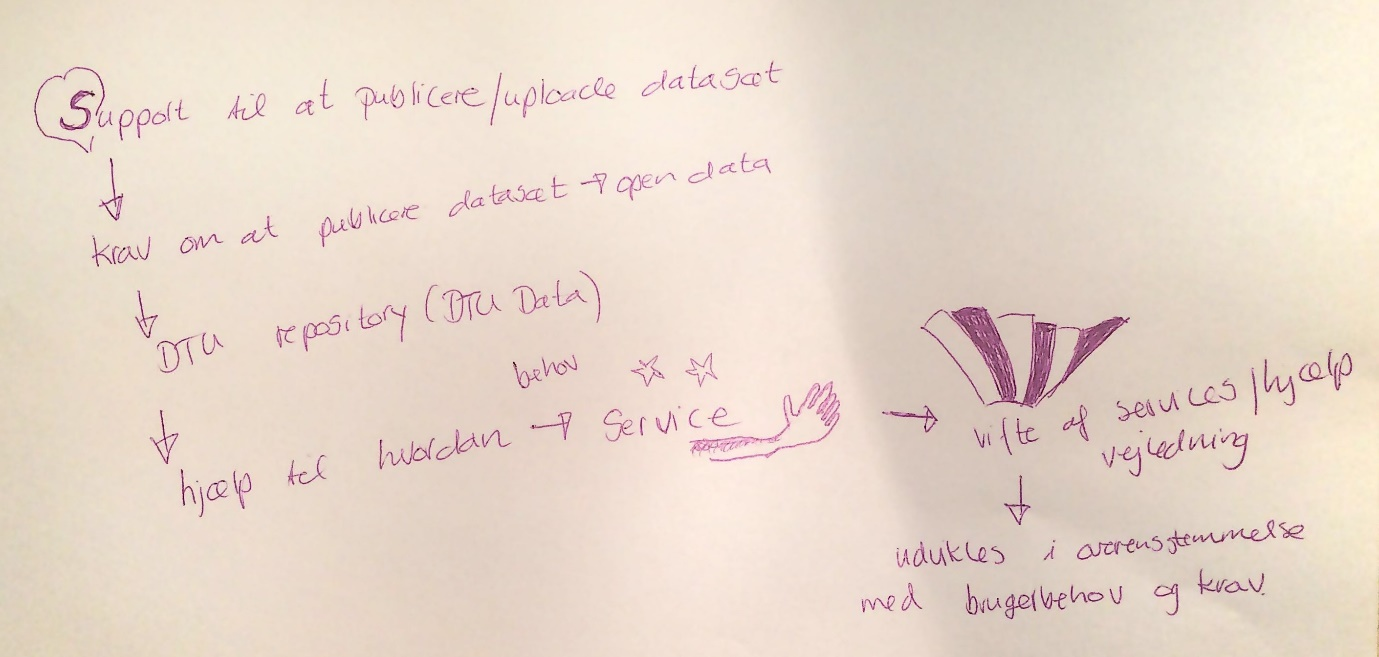 Support til at publicere/uploade datasæt
krav om at publicere datasæt → open data
DTU repository (DTU Data)
behov
hjælp til hvordan → Service
vifte af services/hjælp
vejledning
udvikles i overensstemmelse
med brugerbehov og krav